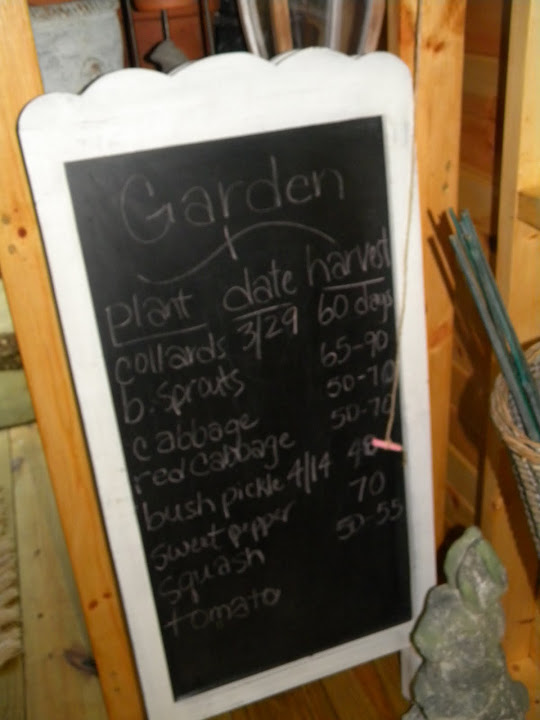 Garden
plant date harvest
collards 3/29 60 days
b. sprouts 65-90
cabbage 50-70
red cabbage 50-70
bush pickle 4/14 48
sweet pepper 70
squash 50-55
tomato